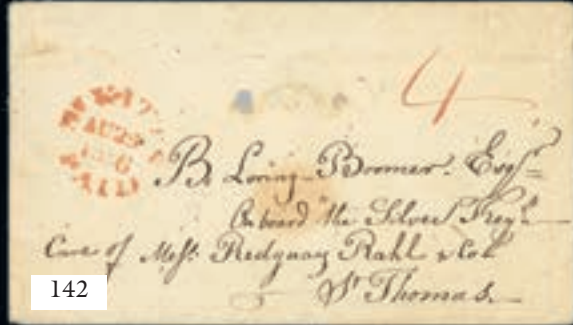 4
AU29
PAID
B. Loring Boomer. Esqr.
On board the Silver Key
Care of Messr. Ridgway Rahl & Co
St Thomas.
142